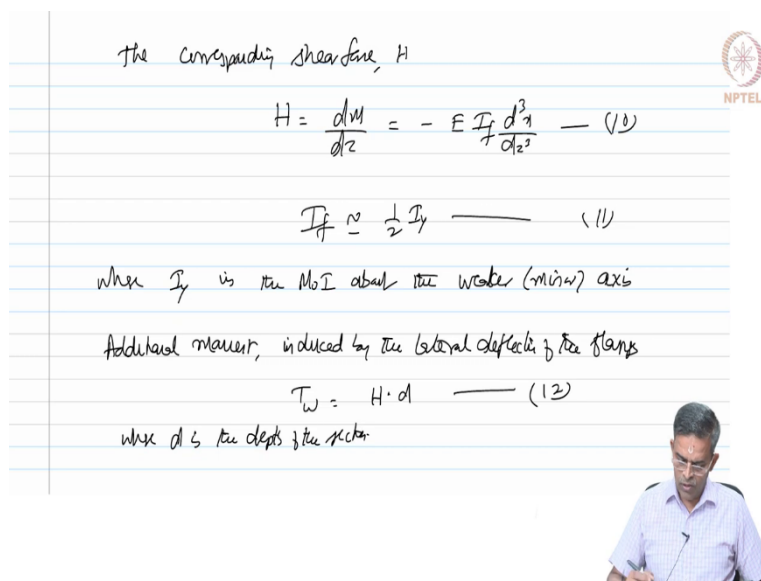 The corresponding shear force, H
NPTEL
H = dM/dz = - E I_f d³x/dz³ — (10)
I_f ≃ 1/2 I_y — (11)
where I_y is the MoI about the weaker (minor) axis
Additional moment, induced by the lateral deflection of the flange
T_w = H · d — (12)
where d is the depth of the section.